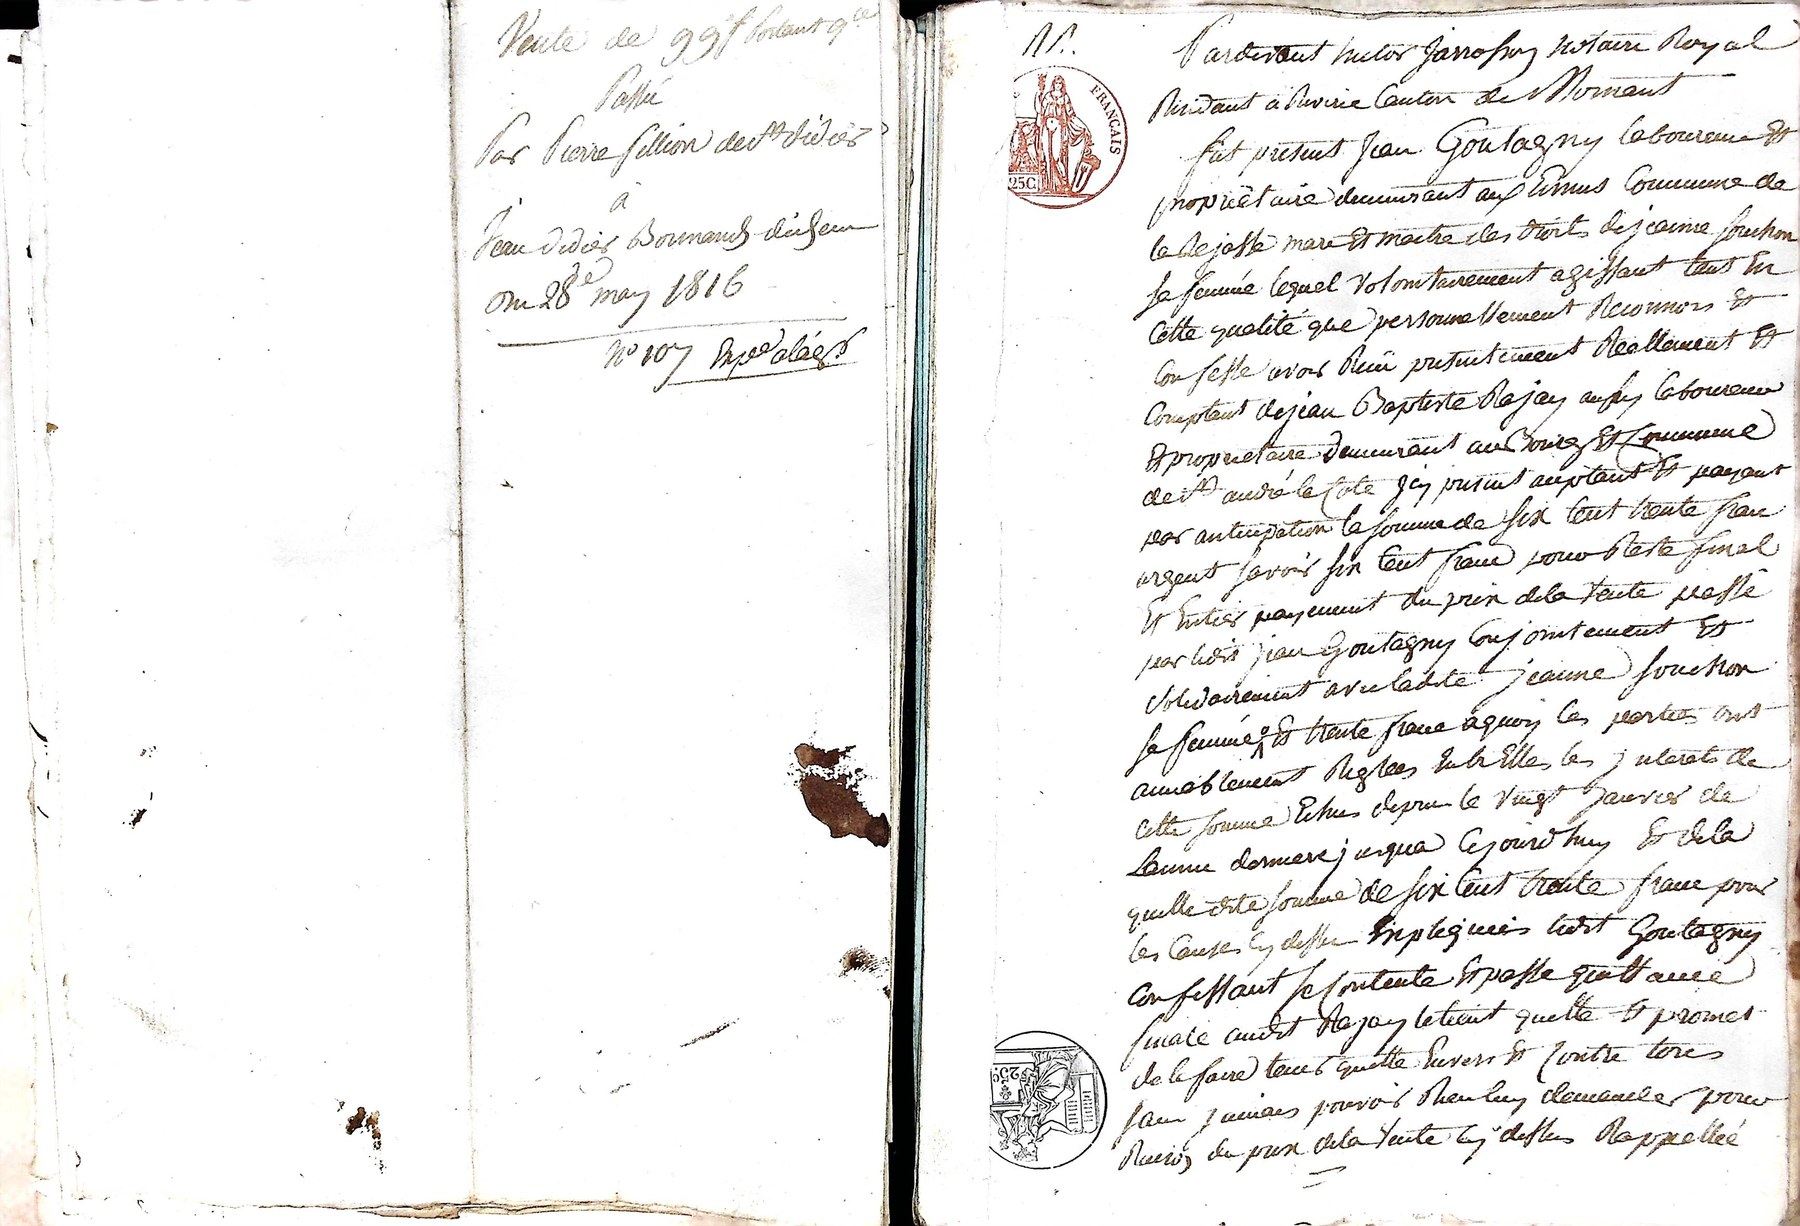 Vente de 99f portant qce
Passée
Par Pierre fillion de St didier
à
Jean didier Bonnand dichem
Du 28e may 1816
No 107 Expée alacqr
Pardevant victor Jarrosson notaire Royal
Residant à Riverie Canton de Mornant
fut présent Jean Goutagny laboureur Et
propriétaire demeurant aux Ermus Commune de
la Rejasse mari Et maitre des droits de jeanne souchon
sa femme lequel volontairement agissant tant En
Cette qualité que personnellement Reconnois Et
Confesse avoir Reçu présentement Réellement Et
Comptant de jean Baptiste Rajay aussy laboureur
Et propriétaire demeurant au Bourg Et Commune
de St andré la Cote jcy présent acceptant Et payant
par anticipation la somme de six Cent trente franc
argent savoir six Cent franc pour Reste final
Et Entier payement du prix de la vente passé
par ledit jean Goutagny Conjointement Et
solidairement avec ladite jeanne souchon
sa femme Et trente franc aquoy les parties ont
amiablement Reglées Entr Elles les jnterets de
cette somme Echus depuis le vingt janvier de
Lannée derniere jusqua Cejourdhuy Et de la
quelle dite somme de six Cent trente franc pour
les Causes cy dessus Expliquées ledit Goutagny
Confessant se Contente Et passe quittance
finale audit Rajay le tient quitte Et promet
de le faire tenir quitte Envers Et Contre tous
sans jamais pouvoir Rien luy demander pour
Raison du prix de la vente cy dessus Rappellée
FRANÇAIS
25C
25c